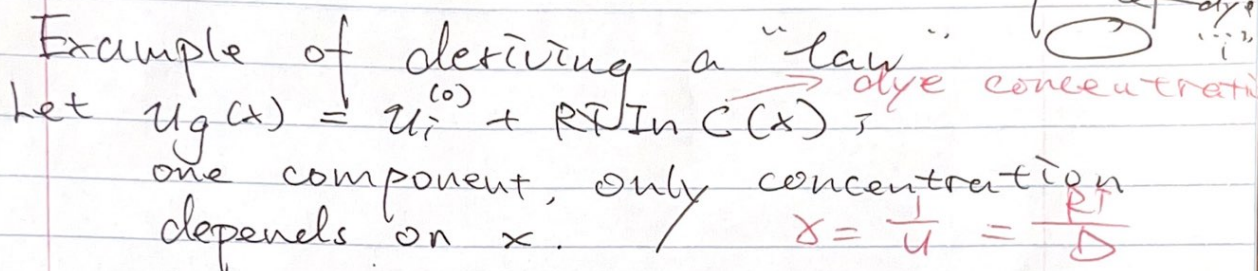 dye
i
Example of deriving a "law"
dye concentrati
Let μg(x) = μi^(0) + RT ln C(x),
one component, only concentration
depends on x. / γ = 1/u = RT/D